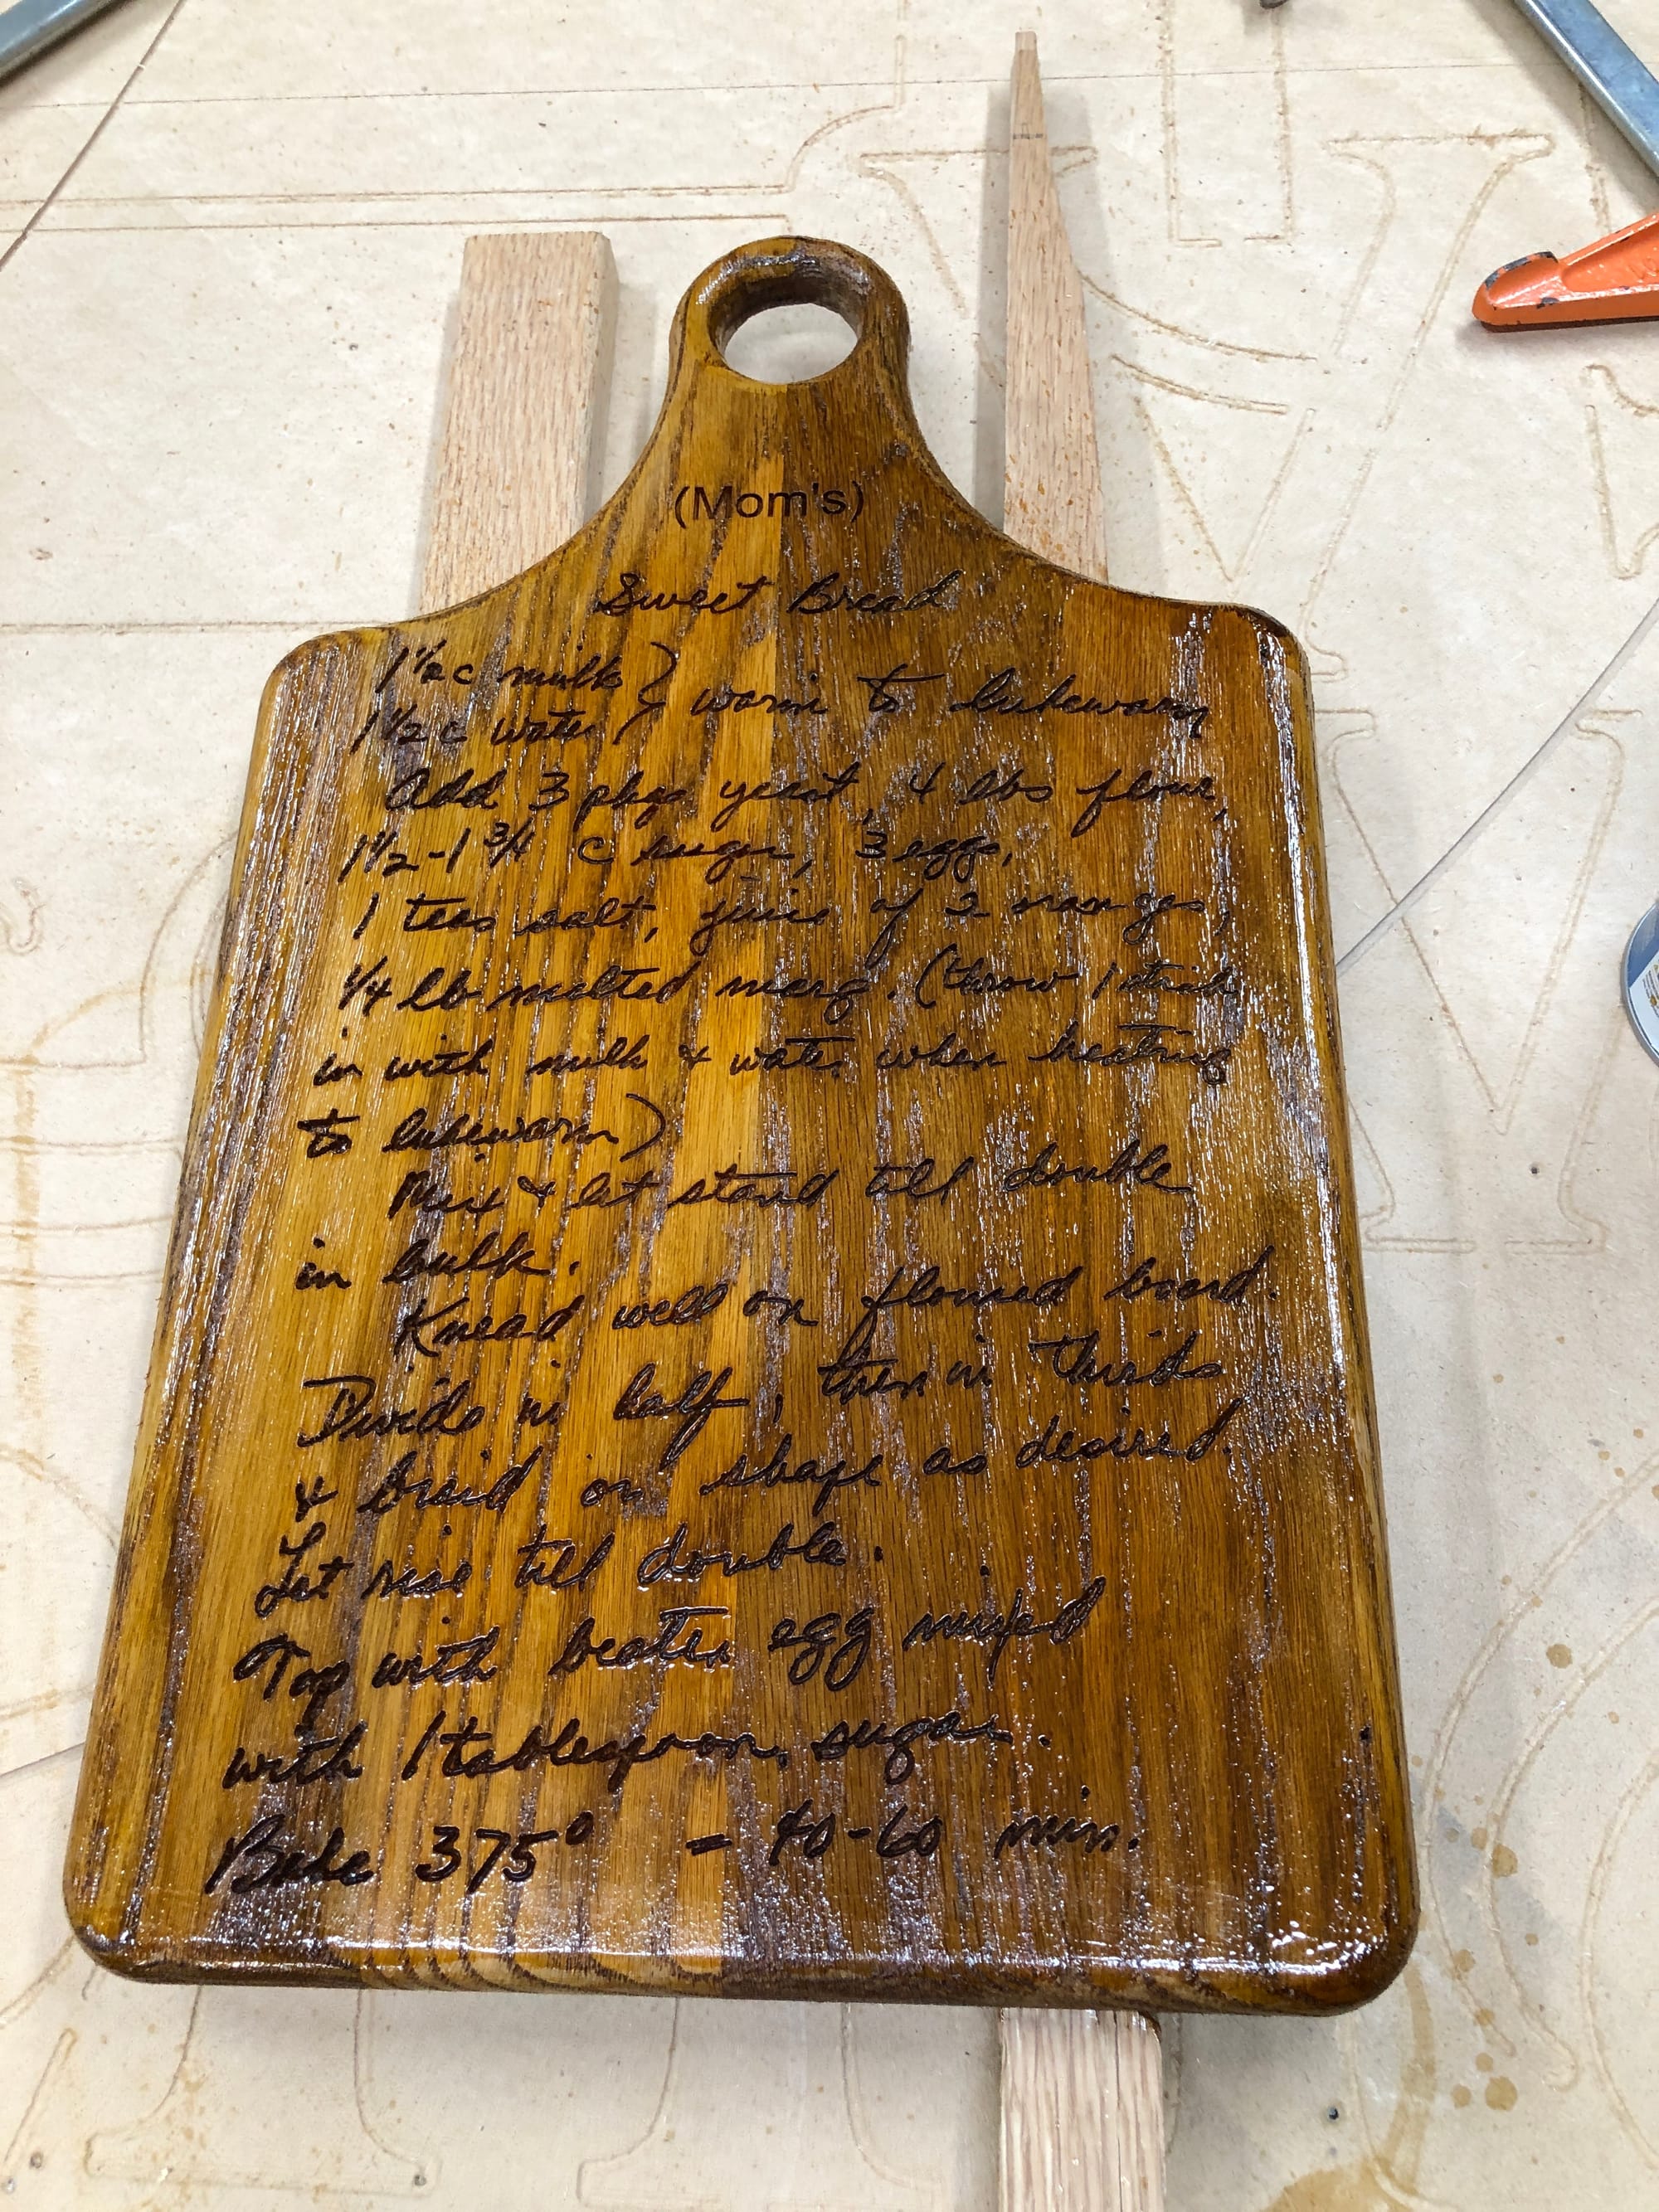 (Mom's)
Sweet Bread
1 1/2 c milk }
1 1/2 c water } warm to lukewarm
Add 3 pkgs yeast, 4 lbs flour,
1 1/2 - 1 3/4 c sugar, 3 eggs,
1 teas salt, juice of 2 oranges,
1/4 lb melted marg. (throw 1 stick
in with milk & water when heating
to lukewarm)
Mix & let stand till double
in bulk.
Knead well on floured board.
Divide in half, then in thirds
& braid or shape as desired.
Let rise till double.
Top with beaten egg mixed
with 1 tablespoon sugar.
Bake 375° = 40-60 min.